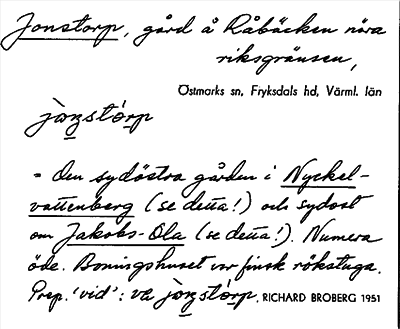 Jonstorp, gård å Råbäcken nära
riksgränsen,
Östmarks sn, Fryksdals hd, Värml. län
jo̱nstó̱rp
= den sydöstra gården i Nyckel-
vattenberg (se detta!) och sydost
om Jakobs-Ola (se detta!). Numera
öde. Boningshuset var finsk rökstuga.
Prep. 'vid': va jo̱nstó̱rp. RICHARD BROBERG 1951